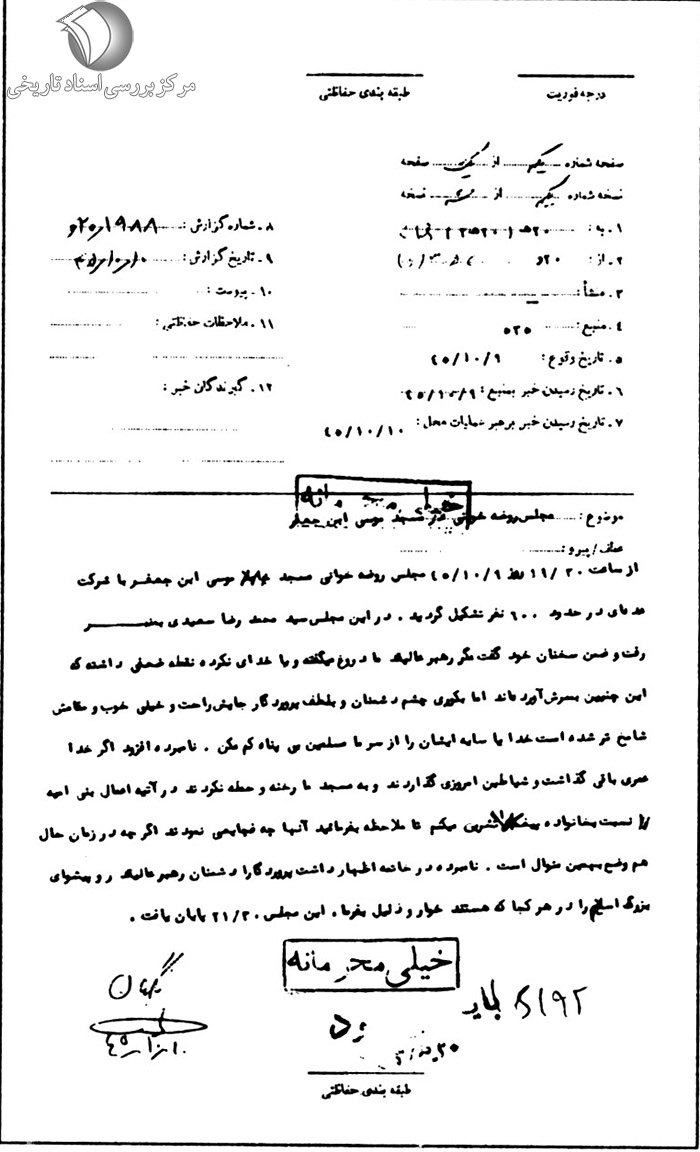 مرکز بررسی اسناد تاریخی
درجه فوریت
طبقه بندی حفاظتی
صفحه شماره یک از یک صفحه
نسخه شماره یک از نسخه
۱ـ به : ۲۰ه
۲ـ از : ۲۰و
۳ـ منشأ :
۴ـ منبع : ۵۲۵
۵ـ تاریخ وقوع : ۴۵/۱۰/۹
۶ـ تاریخ رسیدن خبر بمنبع : ۴۵/۱۰/۹
۷ـ تاریخ رسیدن خبر برهبر عملیات محل : ۴۵/۱۰/۱۰
۸ـ شماره گزارش :
۹ـ تاریخ گزارش :
۱۰ـ پیوست :
۱۱ـ ملاحظات حفاظتی :
۱۲ـ گیرندگان خبر :
خیلی محرمانه
موضوع : مجلس روضه خوانی در مسجد موسی ابن جعفر
عطف/پیرو :
از ساعت ۱۹/۳۰ روز ۴۵/۱۰/۹ مجلس روضه خوانی مسجد موسی ابن جعفر با شرکت
عده‌ای در حدود ۶۰۰ نفر تشکیل گردید . در این مجلس سید محمد رضا سعیدی بمنبر
رفت و ضمن سخنان خود گفت مگر رهبر عالیقدر ما دروغ میگفته و یا خدای نکرده نقطه ضعفی داشته که
این چنین بسرش آورده‌اند اما بکوری چشم دشمنان و بلطف پروردگار جایش راحت و خیلی خوب و مقامش
شامخ تر شده است خدا یا سایه ایشان را از سر ما مسلمین بی پناه کم مکن . نامبرده افزود اگر خدا
عمری باقی گذاشت و شیاطین امروزی گذاردند و به مسجد ما رخنه و حمله نکردند در آتیه اعمال بنی امیه
را نسبت بخانواده تشریح میکنم تا ملاحظه بفرمائید آنها چه فجایعی نمودند اگر چه در زمان حال
هم وضع بهمین منوال است . نامبرده در خاتمه اظهار داشت پروردگارا دشمنان رهبر عالیقدر و پیشوای
بزرگ اسلام را در هر کجا که هستند خوار و ذلیل بفرما . این مجلس ۲۱/۳۰ پایان یافت .
خیلی محرمانه
طبقه بندی حفاظتی